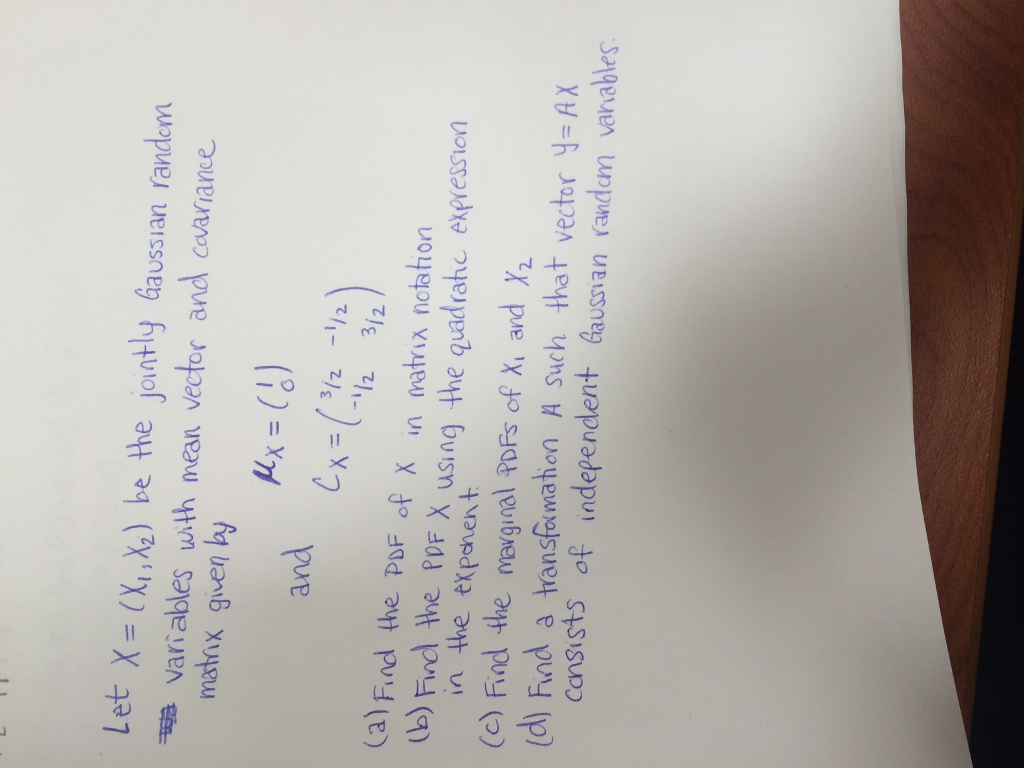 Let X = (X₁, X₂) be the jointly Gaussian random
variables with mean vector and covariance
matrix given by
μx = (1 0)
and
Cx = (3/2 -1/2
-1/2 3/2)
(a) Find the PDF of X in matrix notation
(b) Find the PDF X using the quadratic expression
in the exponent.
(c) Find the marginal PDFs of X₁ and X₂
(d) Find a transformation A such that vector Y = AX
consists of independent Gaussian random variables.